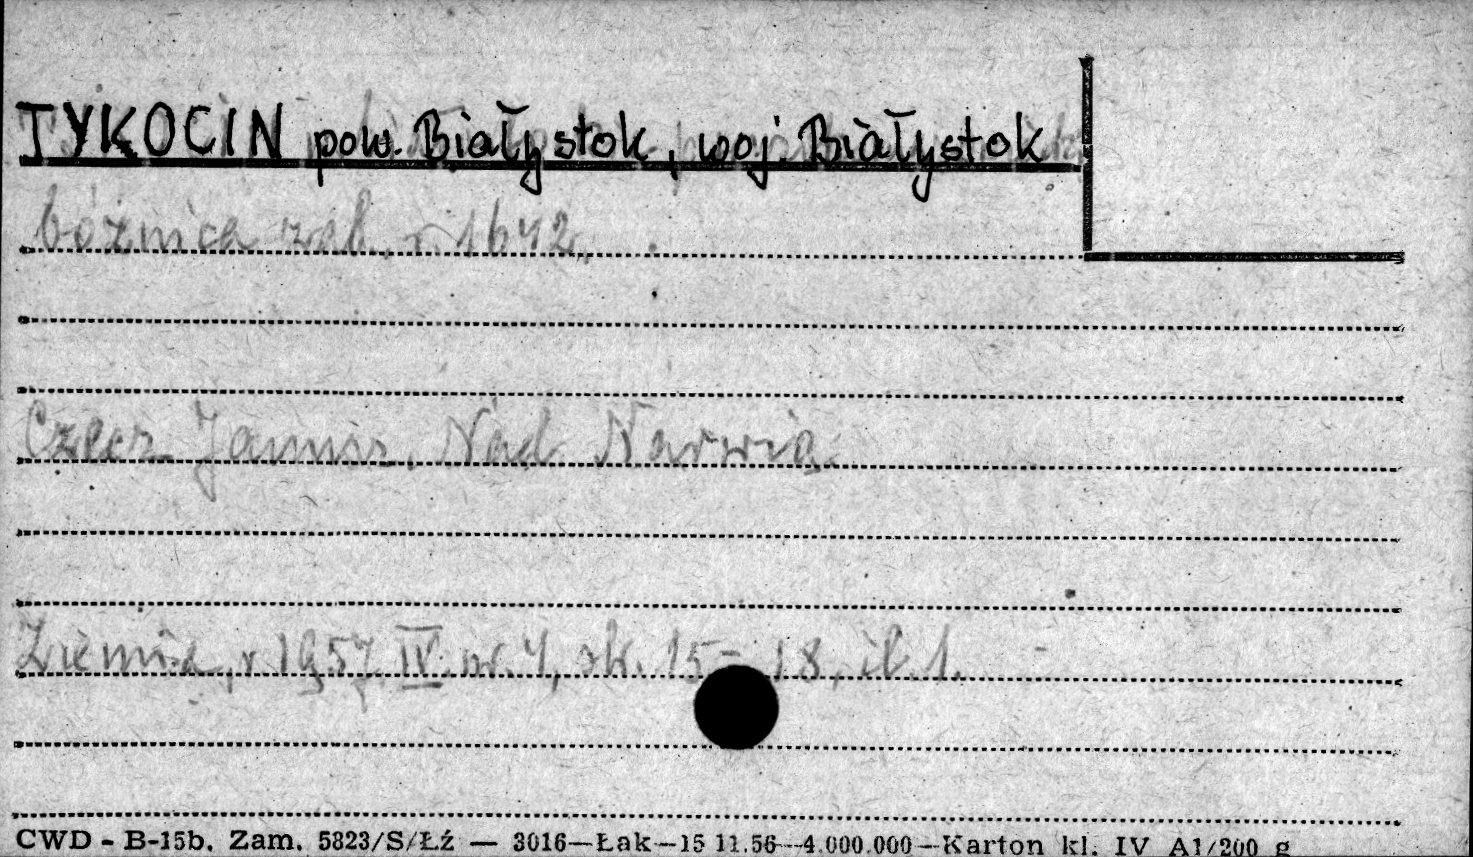 TYKOCIN pow. Białystok, woj. Białystok
bóżnica zał. r. 1642.
Czecz Nad Narwią.
Ziemia, r 1957, IV. nr. 4, str. 15-18, il. 1.
CWD - B-15b. Zam. 5823/S/Łź — 3016—Łak—15 11.56—4.000.000—Karton kl. IV A1/200 g